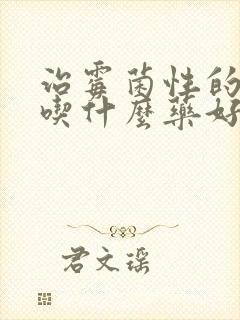 治霉菌性的
喫什麼藥好
君文瑶